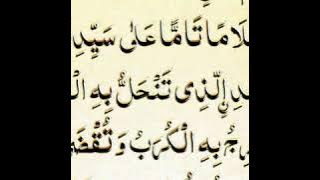 لَامًا تَامًّا عَلٰى سَيِّدِ
دِ نِ الَّذِى تَنْحَلُّ بِهِ الْ
رِجُ بِهِ الْكُرَبُ وَ تُقْضَ